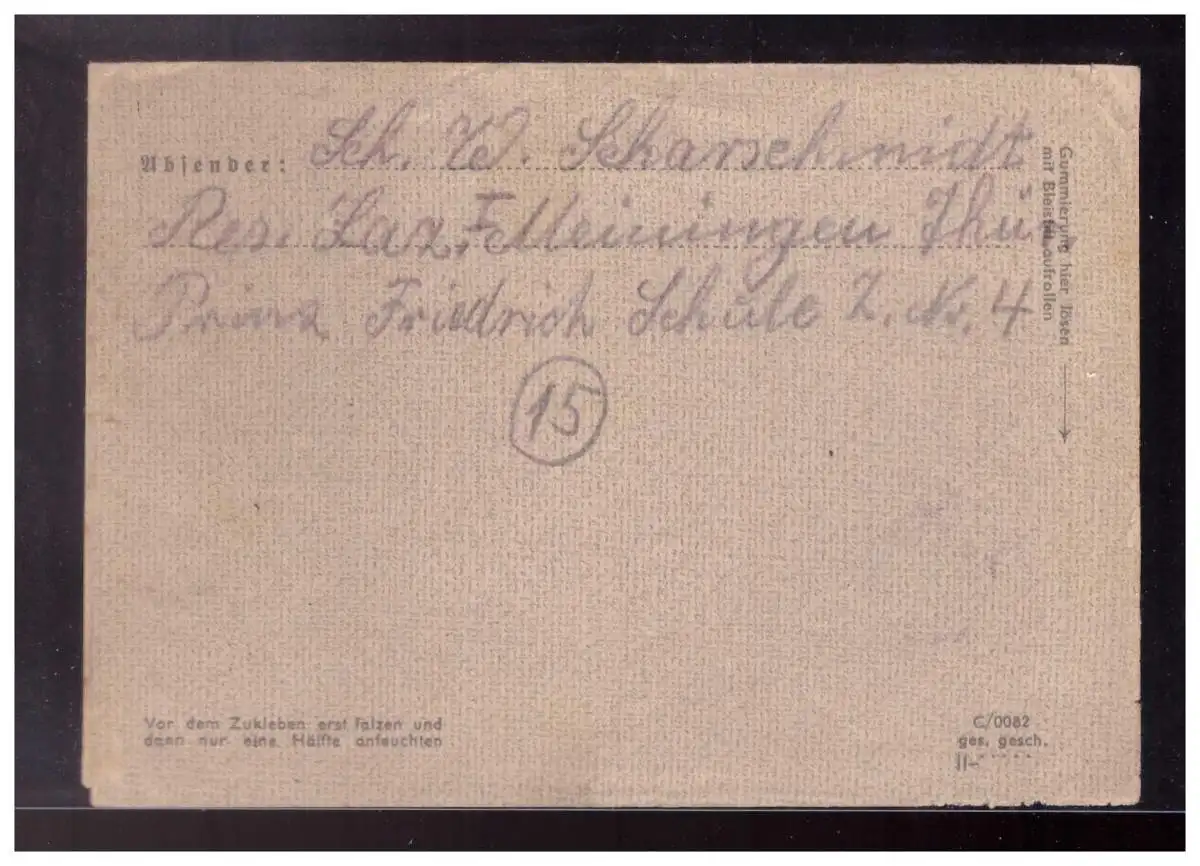 Absender: Sch. W. Scharschmidt
Res. Laz. F. Meiningen Thür.
Prinz Friedrich Schule Z. Nr. 4
15
Gummierung hier lösen
mit Bleistift aufrollen
Vor dem Zukleben erst falzen und
dann nur eine Hälfte anfeuchten
C/0082
ges. gesch.
II-